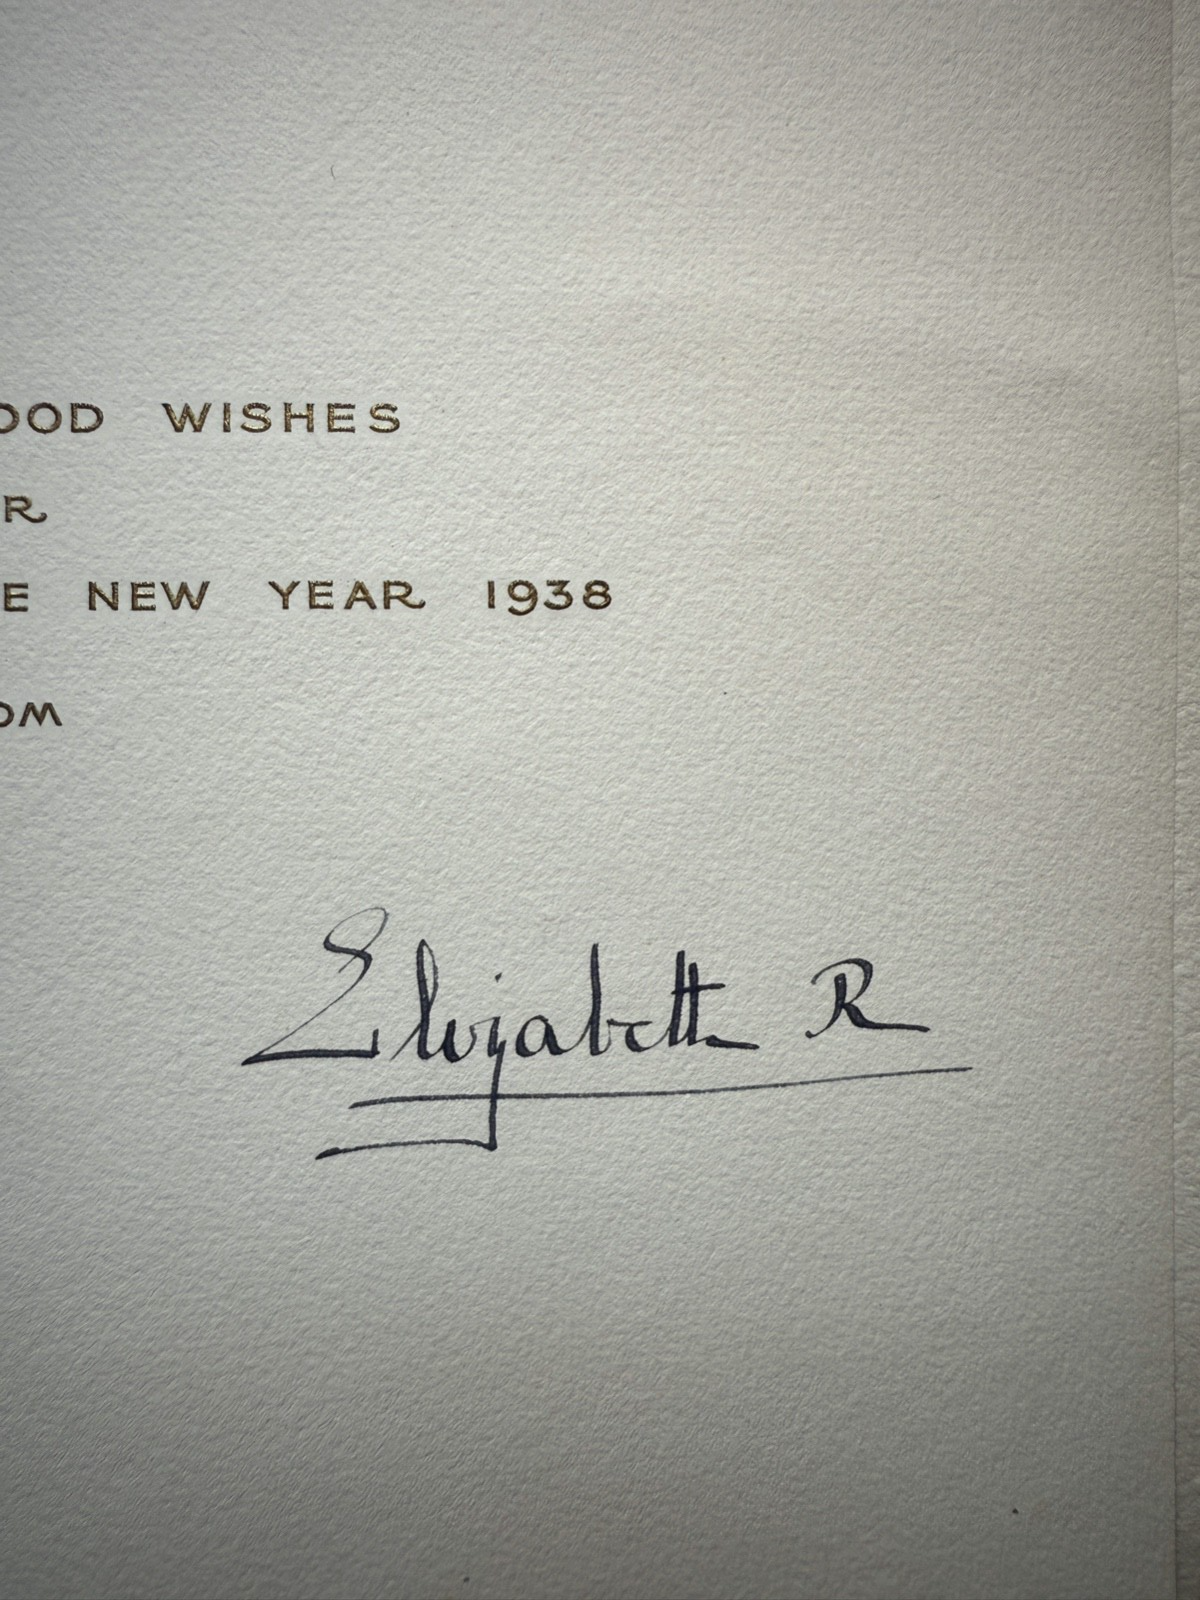 OOD WISHES
R
E NEW YEAR 1938
OM
Elizabeth R